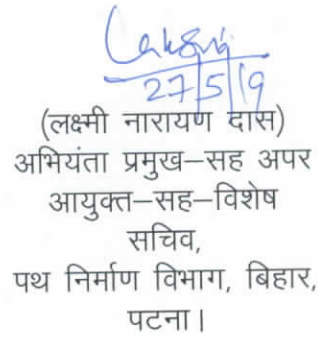 Lakshmi
27/5/19
(लक्ष्मी नारायण दास)
अभियंता प्रमुख–सह अपर
आयुक्त–सह–विशेष
सचिव,
पथ निर्माण विभाग, बिहार,
पटना।